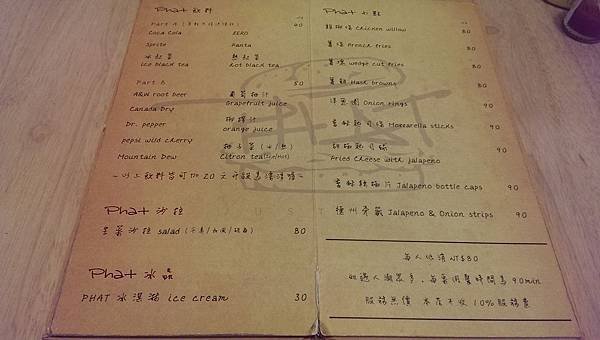 Phat 飲料
Part A
40
Coca Cola
ZERO
Sprite
Fanta
冰紅茶
熱紅茶
Ice black tea
hot black tea
Part B
50
A&W root beer
葡萄柚汁
Grapefruit juice
Canada Dry
柳橙汁
Dr. pepper
orange juice
pepsi wild cherry
柚子茶 (冰/熱)
Mountain Dew
Citron tea(Ice/Hot)
~以上飲料皆可加20元升級為漂浮~
Phat 沙拉
生菜沙拉 salad
80
Phat 冰品
PHAT 冰淇淋 ice cream
30
Phat 小點
雞柳條 Chicken willow
80
薯條 French fries
80
薯塊 wedge cut fries
80
薯餅 Hash browns
80
洋蔥圈 Onion rings
90
香酥起司條 Mozzarella sticks
90
胡椒起司球
90
Fried Cheese with jalapeno
香酥辣椒片 Jalapeno bottle caps
90
德州 Jalapeno & Onion strips
90
每人低消 NT$80
如遇人潮眾多，每桌用餐時間為 90min
服務無價 本店不收 10%服務費